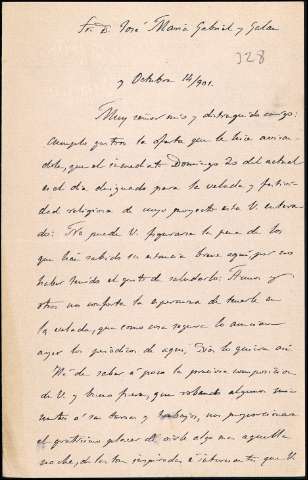 Sr. D. José María Gabriel y Galan
328
y Octubre 14/901.
Muy señor mio y distinguido amigo:
cumplo gustoso la oferta que le hice avisan-
dole, que el inmediato Domingo 20 del actual
es el dia designado para la velada y festivi-
dad religiosa de cuyo proyecto esta V. entera-
do: No puede V. figurarse la pena de los
que han sabido su estancia breve aqui por no
haber tenido el gusto de saludarle: A unos y
otros nos conforta la esperanza de tenerle en
la velada, que como cosa segura lo anuncian
ayer los periodicos de aqui, Dios lo quiera asi
Há de saber á poco la preciosa composicion
de V. y bueno fuera, que robando algunos mi-
nutos á sus tareas y trabajos, nos proporcionara
el gratisimo placer de oirle algo mas aquella
noche, de las tan inspiradas é interesantes que V.